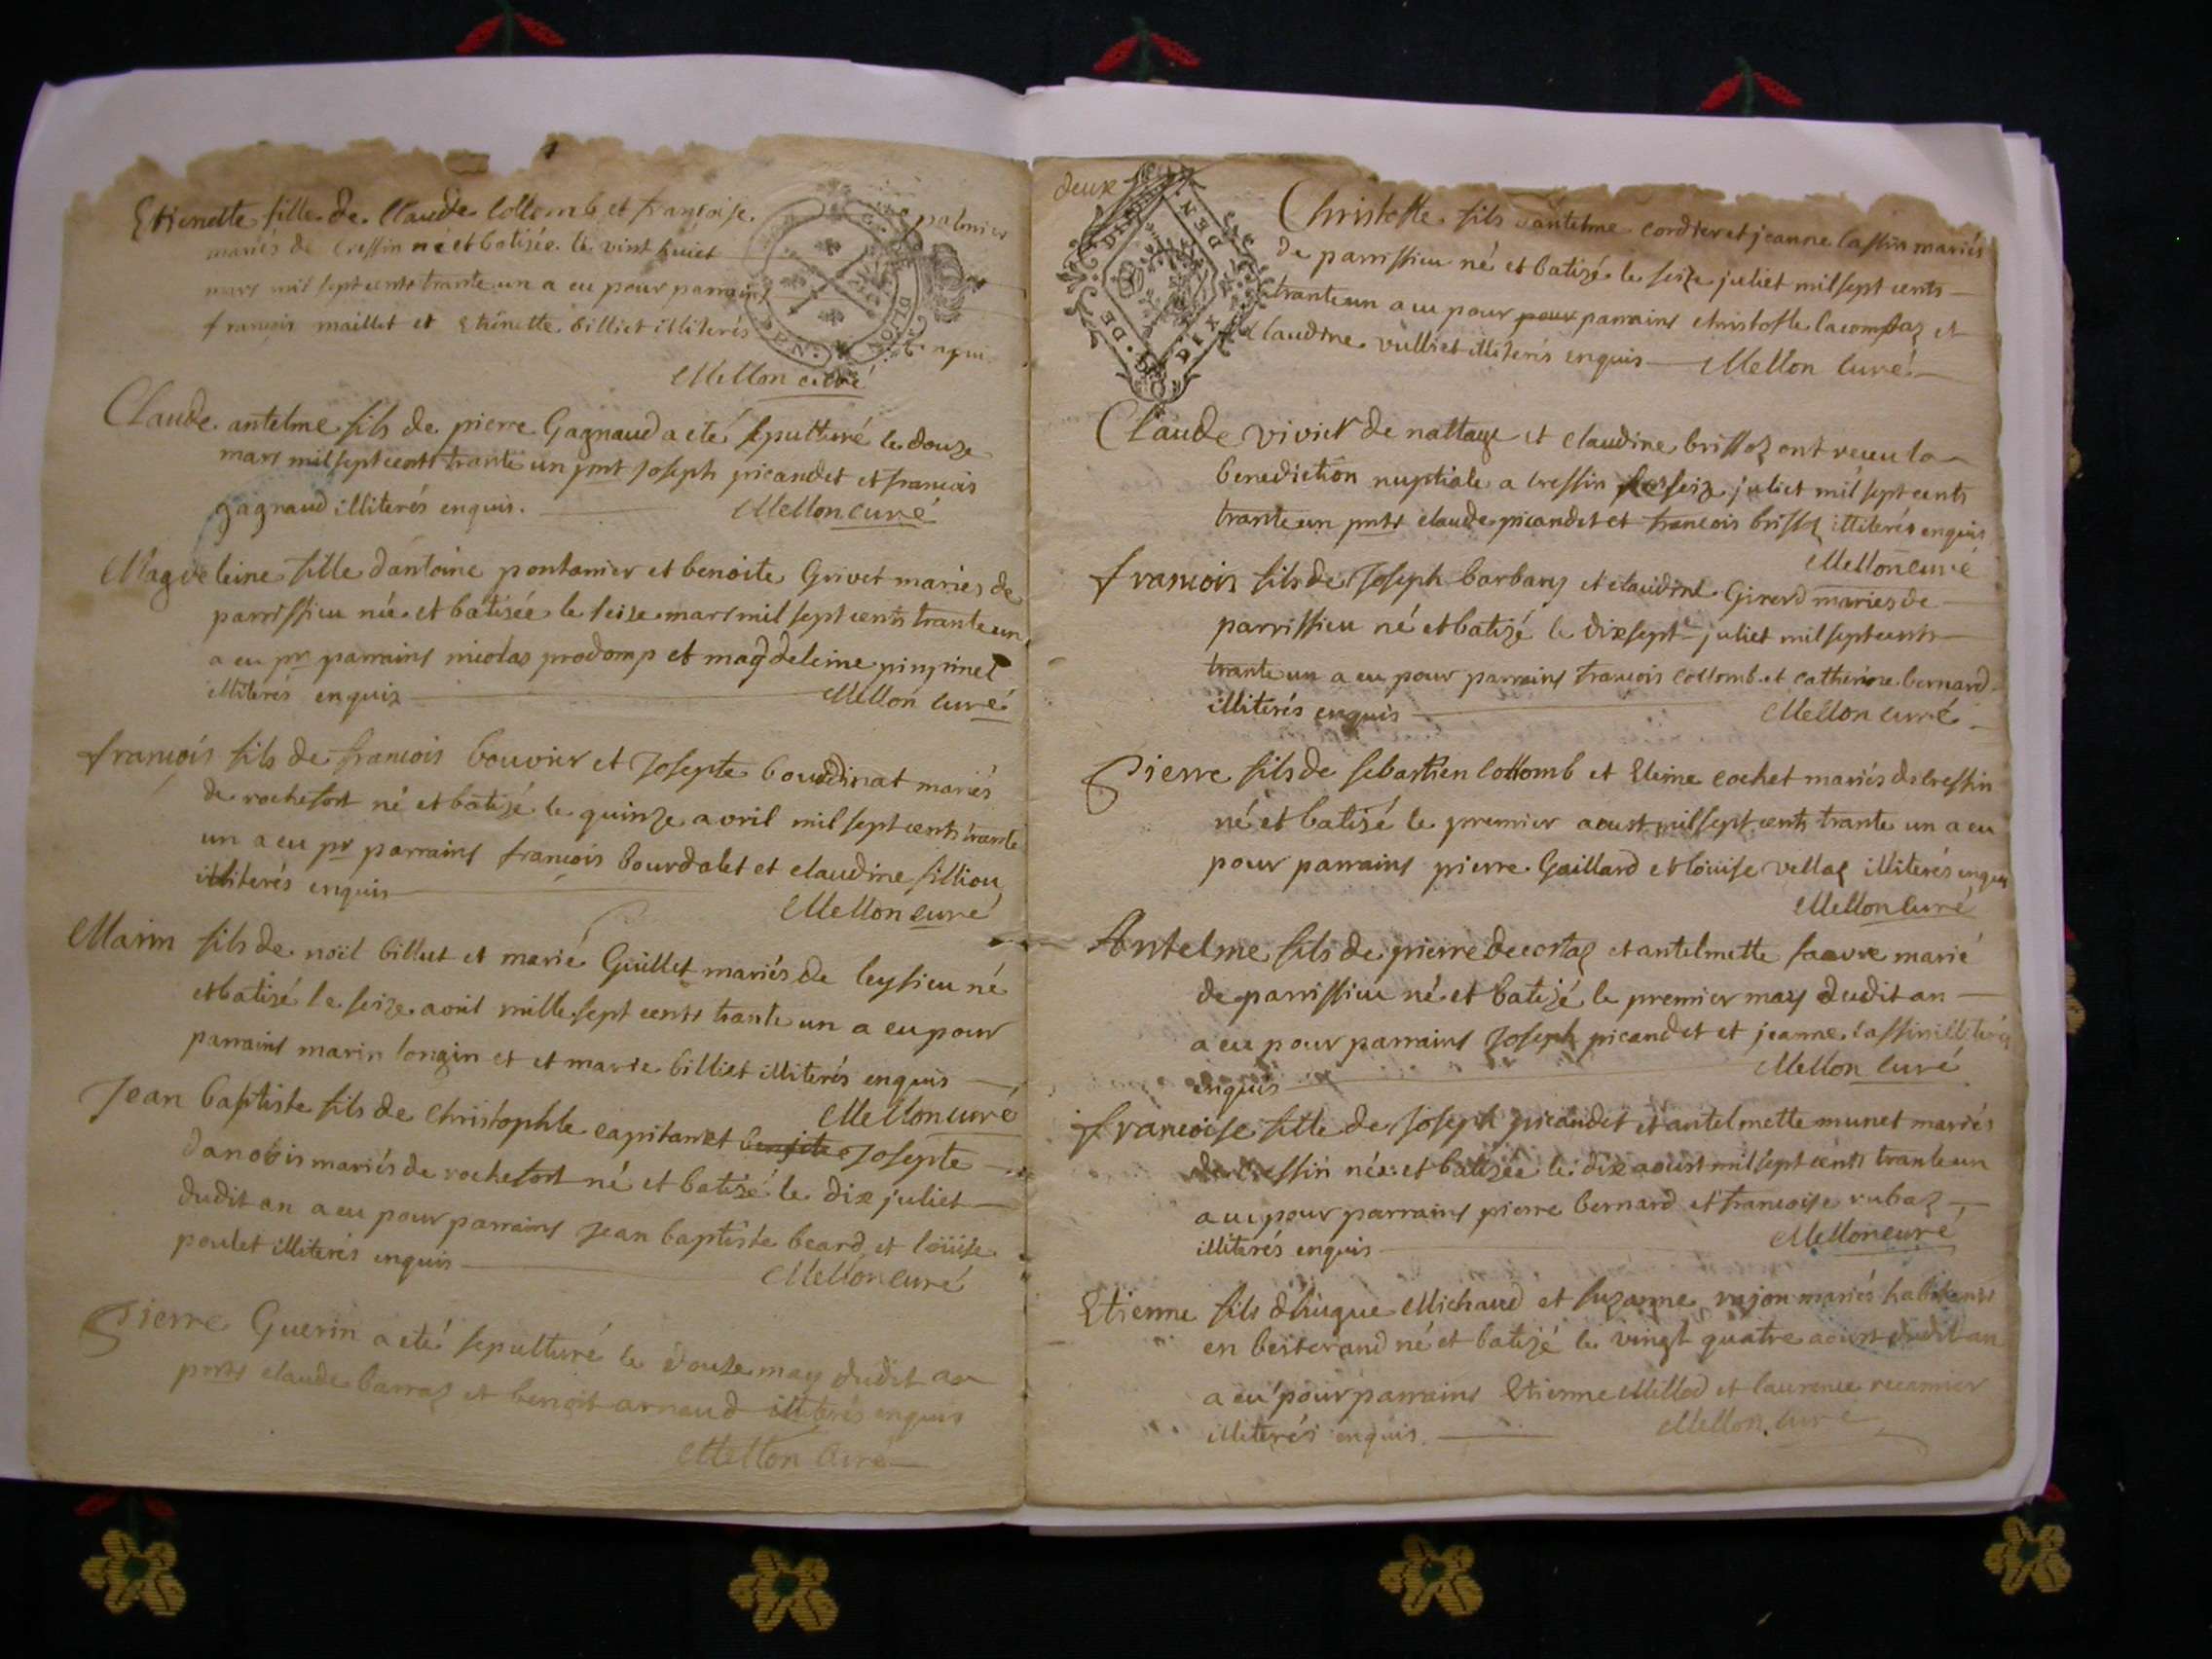 Etienette fille de Claude Collomb et francoise palmier
mariés de Cressin né et batisée le vint huict
mars mil sept cents trante un a eu pour parrains
francois maillet et Etienette billiet illiterés enquis
Mellon curé
Claude antelme fils de pierre Gagnaud a eté sepulturé le douze
mars mil sept cents trante un pnt Joseph picandet et francois
gagnaud illiterés enquis. Mellon curé
Magdeleine fille dantoine pontanier et benoite Grivet mariés de
parrissieu née et batisée le seize mars mil sept cents trante un
a eu pr parrains nicolas prodomp et magdeleine pinpinel
illiterés enquis Mellon curé
françois fils de francois bouvier et Josepte bourdinat mariés
de rochefort né et batizé le quinze avril mil sept cents trante
un a eu pr parrains françois bourdalet et claudine filliou
illiterés enquis Mellon curé
Marin fils de noël billiet et marie Guillet mariés de leysieu né
et batizé le seize avril mille sept cents trante un a eu pour
parrains marin longin et et marie billiet illiterés enquis
Mellon curé
Jean baptiste fils de Christophle capitan et benoite Josepte
danobis mariés de rochefort né et batizé le dix juliet
dudit an a eu pour parrains Jean baptiste beard et loüise
poulet illiterés enquis Mellon curé
Pierre Guerin a eté sepulturé le douze may dudit an
pnts claude barraz et benoit arnaud illiterés enquis
Mellon curé
deux
Christofle fils dantelme cordier et jeanne lassin mariés
de parrissieu né et batizé le seize juliet mil sept cents
trante un a eu pour pour parrains christofle lacombaz et
Claudine vulliet illiterés enquis Mellon Curé
Claude vivier de nattage et claudine brissoz ont receu la
benediction nuptiale a cressin le seize juliet mil sept cents
trante un pnts claude picandet et francois brissoz illiterés enquis
Mellon curé
francois fils de Joseph barbary et claudine Girerd mariés de
parrissieu né et batizé le dixsept juliet mil sept cents
trante un a eu pour parrains francois collomb et catherine bernard
illiterés enquis Mellon curé
Pierre fils de sebastien Collomb et Eleine cochet mariés de cressin
né et batizé le premier aoust mil sept cents trante un a eu
pour parrains pierre Gaillard et loüise vellaz illiterés enquis
Mellon Curé
Antelme fils de pierre decostaz et antelmette faavre marié
de parrissieu né et batizé le premier may dudit an
a eu pour parrains Joseph picandet et jeanne lassin illiterés
enquis Mellon Curé
francoise fille de Joseph picandet et antelmette munet mariés
de Cressin née et batizée le dix aoust mil sept cents trante un
a eu pour parrains pierre bernard et francoise rubaz
illiterés enquis Mellon curé
Etienne fils dhugue Michaud et suzanne rajon mariés habitants
en beiterand né et batizé le vingt quatre aoust dudit an
a eu pour parrains Etienne Millod et laurence recamier
illiterés enquis Mellon Curé